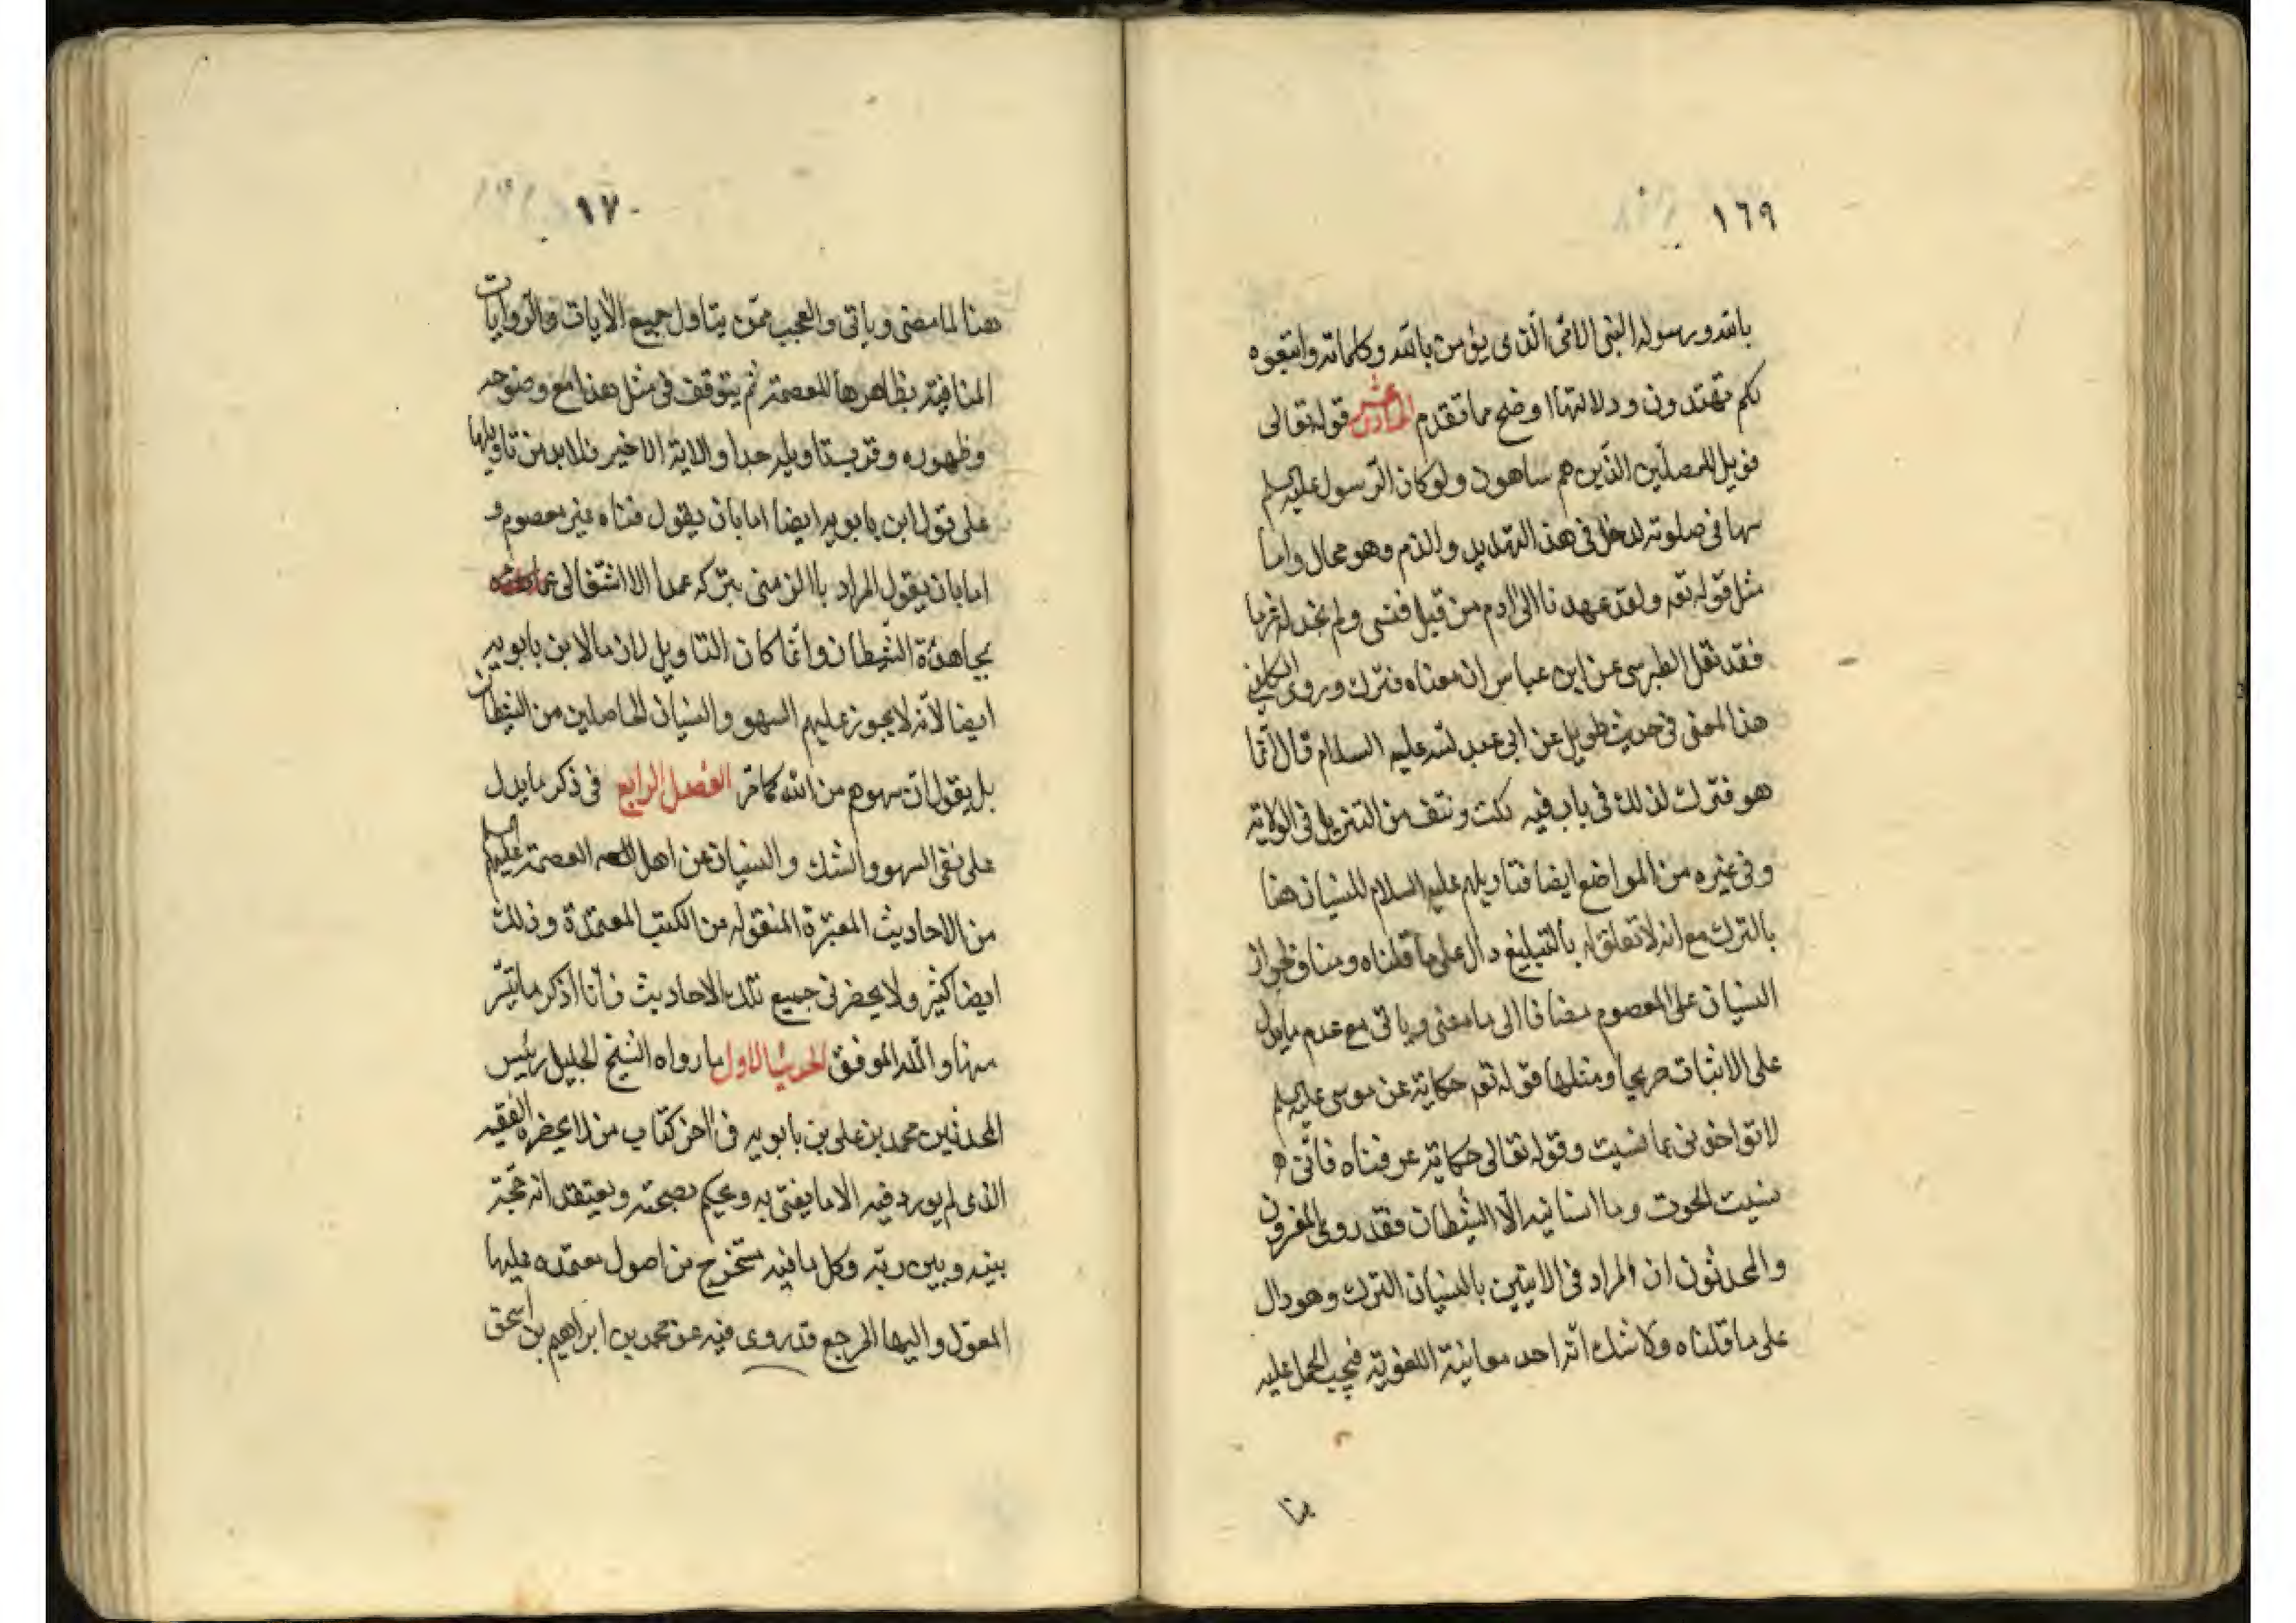 ١٦٩
بالله ورسوله النبى الامى الذى يؤمن بالله وكلماته واتبعوه
لكم تهتدون ودلالتها اوضح مما تقدم السادس عشر قوله تعالى
فويل للمصلين الذين هم ساهون ولو كان الرسول عليه السلم
سها فى صلوته لدخل فى هذا التهديد والذم وهو محال واما
مثل قوله تعه ولقد عهدنا الى ادم من قبل فنسى ولم نجد له عزما
فقد نقل الطبرسى عن ابن عباس ان معناه فترك وروى الكلينى
هذا المعنى فى حديث طويل عن ابى عبد الله عليه السلام قال انما
هو فترك لذلك فى باب فيه نكت ونتف من التنزيل فى الولاية
وفى غيره من المواضع ايضا فتاويلهم عليهم السلام للنسيان هنا
بالترك مع انه لا تعلق له بالتبليغ دال على ما قلناه ومناف لجواز
النسيان على المعصوم مضافا الى ما مضى وياتى مع عدم ما يدل
على الاثبات صريحا ومثلها قوله تعه حكاية عن موسى عليه السلم
لا تؤاخذنى بما نسيت وقوله تعالى حكاية عن فتاه فانى
نسيت الحوت وما انسانيه الا الشيطان فقد روى المفسرون
والمحدثون ان المراد فى الايتين بالنسيان الترك وهو دال
على ما قلناه ولا شك انه احد معانيه اللغوية فيجب الحمل عليه
١٧٠
هنا لما مضى وياتى والعجب ممن يتاول جميع الايات والروايات
المنافية بظاهرها للعصمة ثم يتوقف فى مثل هذا مع وضوحه
وظهوره وقرب تاويله جدا والاية الاخير فلا بد من تاويلها
على قول ابن بابويه ايضا اما بان يقول فتاه غير معصوم و
اما بان يقول المراد بالزمنى بتركه عمدا الا اشتغالى
بجاهدة الشيطان وانما كان التاويل لازما لابن بابويه
ايضا لانه لا يجوز عليهم السهو والنسيان الحاصلين من الشيطان
بل يقول ان سهوهم من الله كما مر الفصل الرابع فى ذكر ما يدل
على نفى السهو والشك والنسيان عن اهل العصمة عليهم السلم
من الاحاديث المعتبرة المنقوله من الكتب المعتمدة وذلك
ايضا كثير ولا يحضرنى جميع تلك الاحاديث فانا اذكر ما تيسر
منها والله الموفق الحديث الاول ما رواه الشيخ الجليل رئيس
المحدثين محمد بن على بن بابويه فى اخر كتاب من لا يحضره الفقيه
الذى لم يورد فيه الا ما يفتى به ويحكم بصحته ويعتقد انه حجة
بينه وبين ربه وكل ما فيه مستخرج من اصول معتمده عليها
المعول واليها المرجع قد روى فيه عن محمد بن ابراهيم بن اسحق